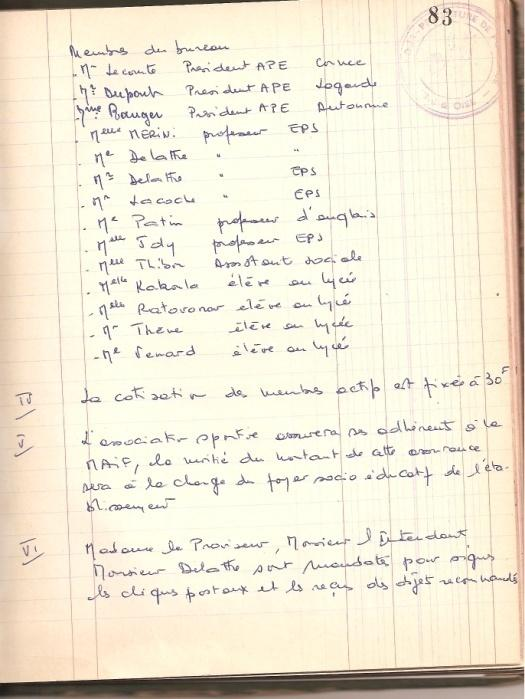 83
Membres du bureau
- Mr Lecomte President APE Cornec
- Mr Dupont President APE Lagarde
- Mme Bouger President APE Automne
- Melle MERINI professeur EPS
- Me Delattre " "
- Mr Delattre " EPS
- Mr Lacoche " EPS
- Me Patin professeur d'anglais
- Melle Joly professeur EPS
- Melle Thibn Assistant sociale
- Melle Kakala élève au lycée
- Melle Ratovonar élève au lycée
- Mr Theve élève au lycée
- Me Venard élève au lycée
IV La cotisation des membres actifs est fixée à 30F
V L'association sportive assurera ses adhérents à la
MAIF, la moitié du montant de cette assurance
sera à la charge du foyer socio éducatif de l'éta-
blissement
VI Madame le Proviseur, Monsieur l'Intendant
Monsieur Delattre sont mandatés pour signer
les chèques postaux et les reçus des objets recommandés